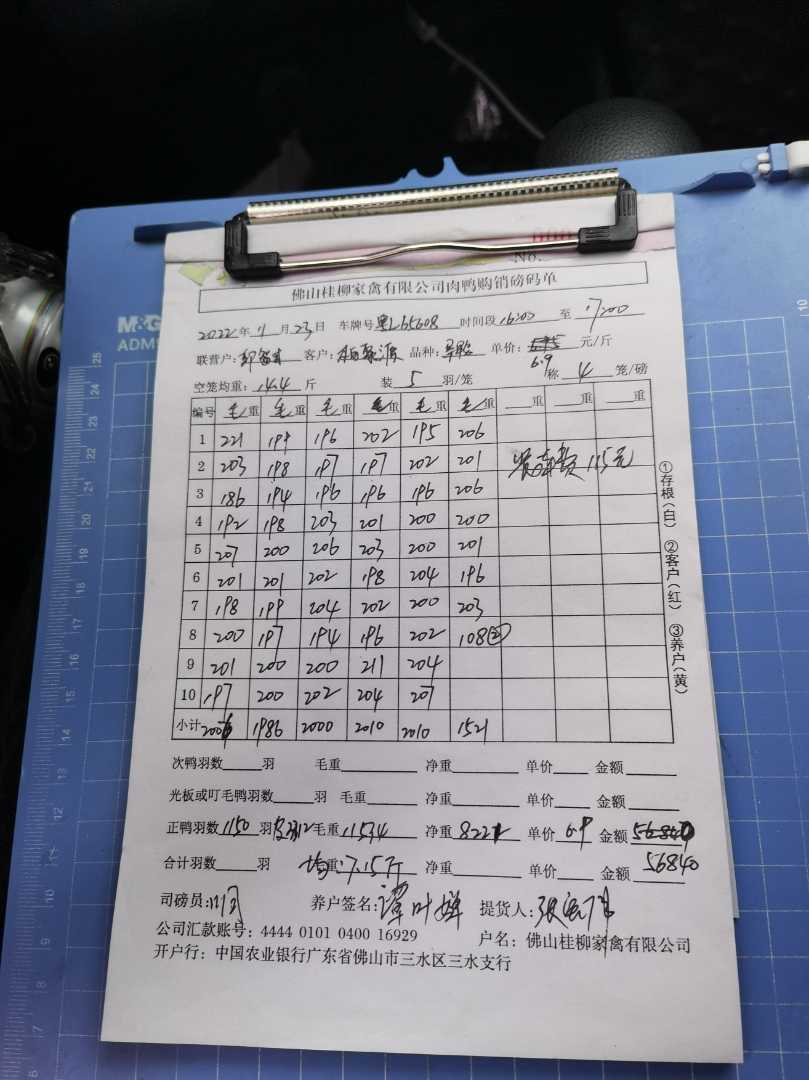 No.
佛山桂柳家禽有限公司肉鸭购销磅码单
2022年 11月 23日 车牌号 粤L65608 时间段 16:00 至 17:00
联营户: 客户: 品种: 单价: 元/斤
6.9
空笼均重: 14.4 斤 装 5 羽/笼 称 4 笼/磅
编号 毛重 毛重 毛重 毛重 毛重 毛重 重 重 重
1 221 199 196 202 195 206
2 203 198 197 197 202 201 115元
3 186 194 196 196 196 206
4 192 198 203 201 200 200
5 207 200 206 203 200 201
6 201 201 202 198 204 196
7 198 199 204 202 200 203
8 200 197 194 196 202 108②
9 201 200 200 211 204
10 197 200 202 204 207
小计 2006 1986 2000 2010 2010 1521
①存根(白) ②客户(红) ③养户(黄)
次鸭羽数 羽 毛重 净重 单价 金额
光板或叮毛鸭羽数 羽 毛重 净重 单价 金额
正鸭羽数 1150 羽 皮3312 毛重 11534 净重 8222 单价 6.9 金额 56840
合计羽数 羽 均重:7.15斤 净重 单价 金额 56840
司磅员: 养户签名: 谭叶婵 提货人:
公司汇款账号: 4444 0101 0400 16929 户名: 佛山桂柳家禽有限公司
开户行: 中国农业银行广东省佛山市三水区三水支行
M&G
25
24
23
22
21
20
19
18
17
16
15
14
13
12
11
10
9
8
7